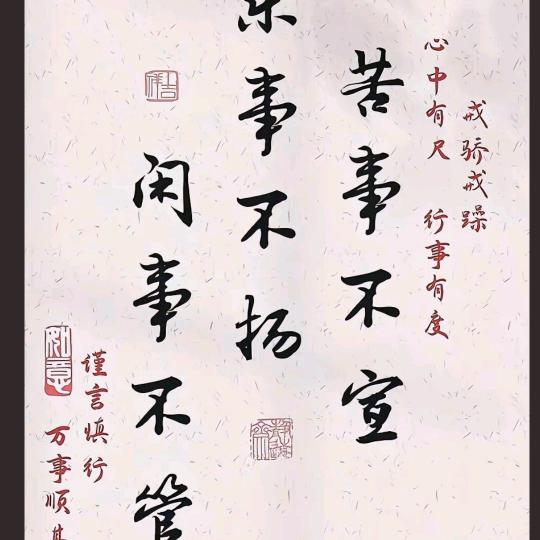 戒骄戒躁
心中有尺 行事有度
苦事不宣
乐事不扬
闲事不管
谨言慎行
万事顺其
如意